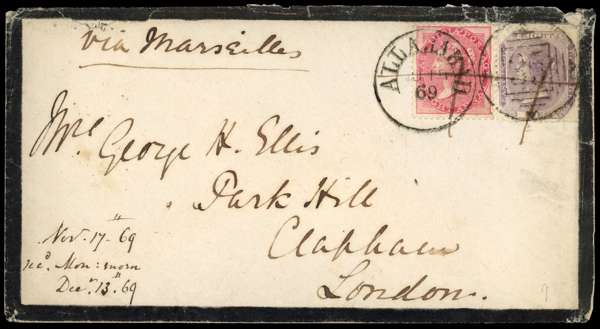 via Marseilles
ALLAHABAD
69
Mrs George H. Ellis
Park Hill
Clapham
London.
Nov. 17th 69
recd. Mon: morn
Decr. 13th 69